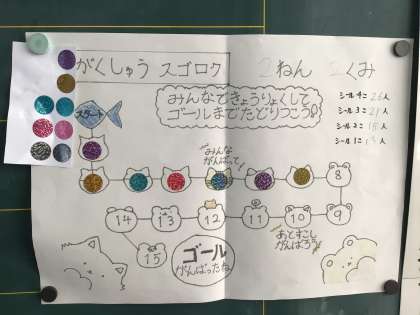 がくしゅう スゴロク 2ねん くみ
スタート
みんなできょうりょくして
ゴールまでたどりつこう!
シール4こ 26人
シール3こ 21人
シール2こ 15人
シール1こ
みんな
がんばって!
8
14 13 12 11 10 9
あとすこし
がんばろう
15
ゴール
がんばったね